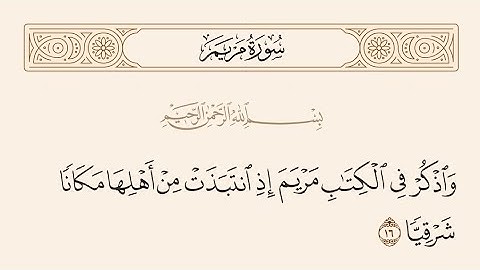 سُورَةُ مَرْيَمَ
بِسْمِ اللَّهِ الرَّحْمَٰنِ الرَّحِيمِ
وَٱذْكُرْ فِى ٱلْكِتَٰبِ مَرْيَمَ إِذِ ٱنتَبَذَتْ مِنْ أَهْلِهَا مَكَانًا
شَرْقِيًّا ١٦